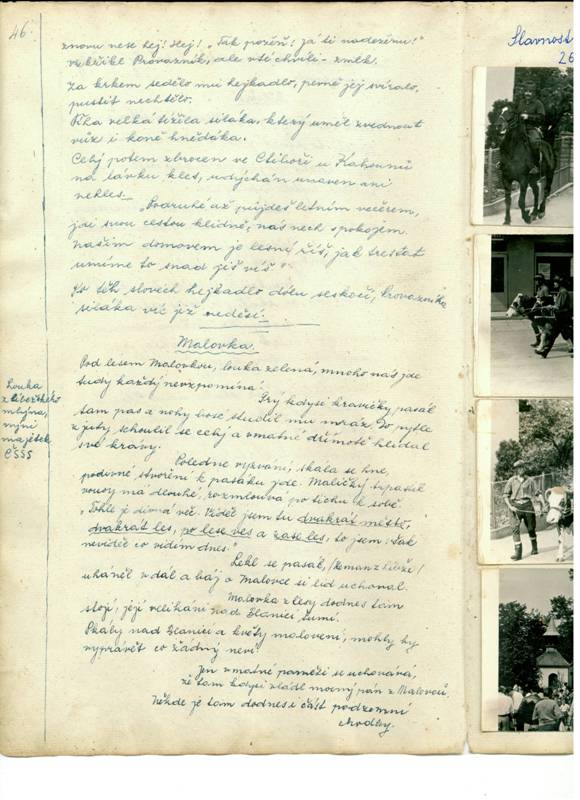 46.
znovu nese hej! Hej! "Tak pozěň! Já ti nadezěnu!"
vykřikl Provazník, ale v té chvíli - zmlk.
Za krkem sedělo mu hejkadlo, pevně jej svíralo,
pustit nechtělo.
velká tížila siláka, který uměl zvednout
vůz i koně hnědáka.
Celý potem zbrocen ve Ctiboři u Kahounů
na lávku kles, udýchán unaven ani
nehles. "Podruhé až půjdeš letním večerem,
jdi svou cestou klidně, nás nech s pokojem.
Naším domovem je lesní říš, jak trestat
umíme to snad již víš!"
Po těh slovech hejkadlo dolů seskočí, Provazníka
siláka víc již neděsí.
Malovka.
Pod lesem Malovkou, louka zelená, mnoho nás jde
tudy každý nevzpomíná.
Prý kdysi kravičky pasák
tam pas a nohy bosé studil mu mráz. Do pytle
z juty schoulil se celý a v matné dřímotě hlídal
své krávy.
Poledne vyzvání, skála se hne,
podivné stvoření k pasáku jde. Maličký trpaslík
vousy má dlouhé, rozmlouvá po tichu k sobě.
"Tohle je divná věc. Viděl jsem tu dvakrát město,
dvakrát les, po lese ves a zase les, to jsem však
neviděl co vidím dnes."
Lekl se pasák,
uháněl v dál a báj o Malovce si lid uchoval.
Malovka z lesy dodnes tam
stojí, její velikáni nad Blanicí šumí.
Skály nad Blanicí a květy malovení, mohly by
vyprávět co žádný neví.
Jen v matné paměti se uchovává,
že tam kdysi vládl mocný pán z Malovců.
Někde je tam dodnes i část podzemní
chodby.
Louka
mlýna,
nyní
majetek
ČSSS
Slavnost
26